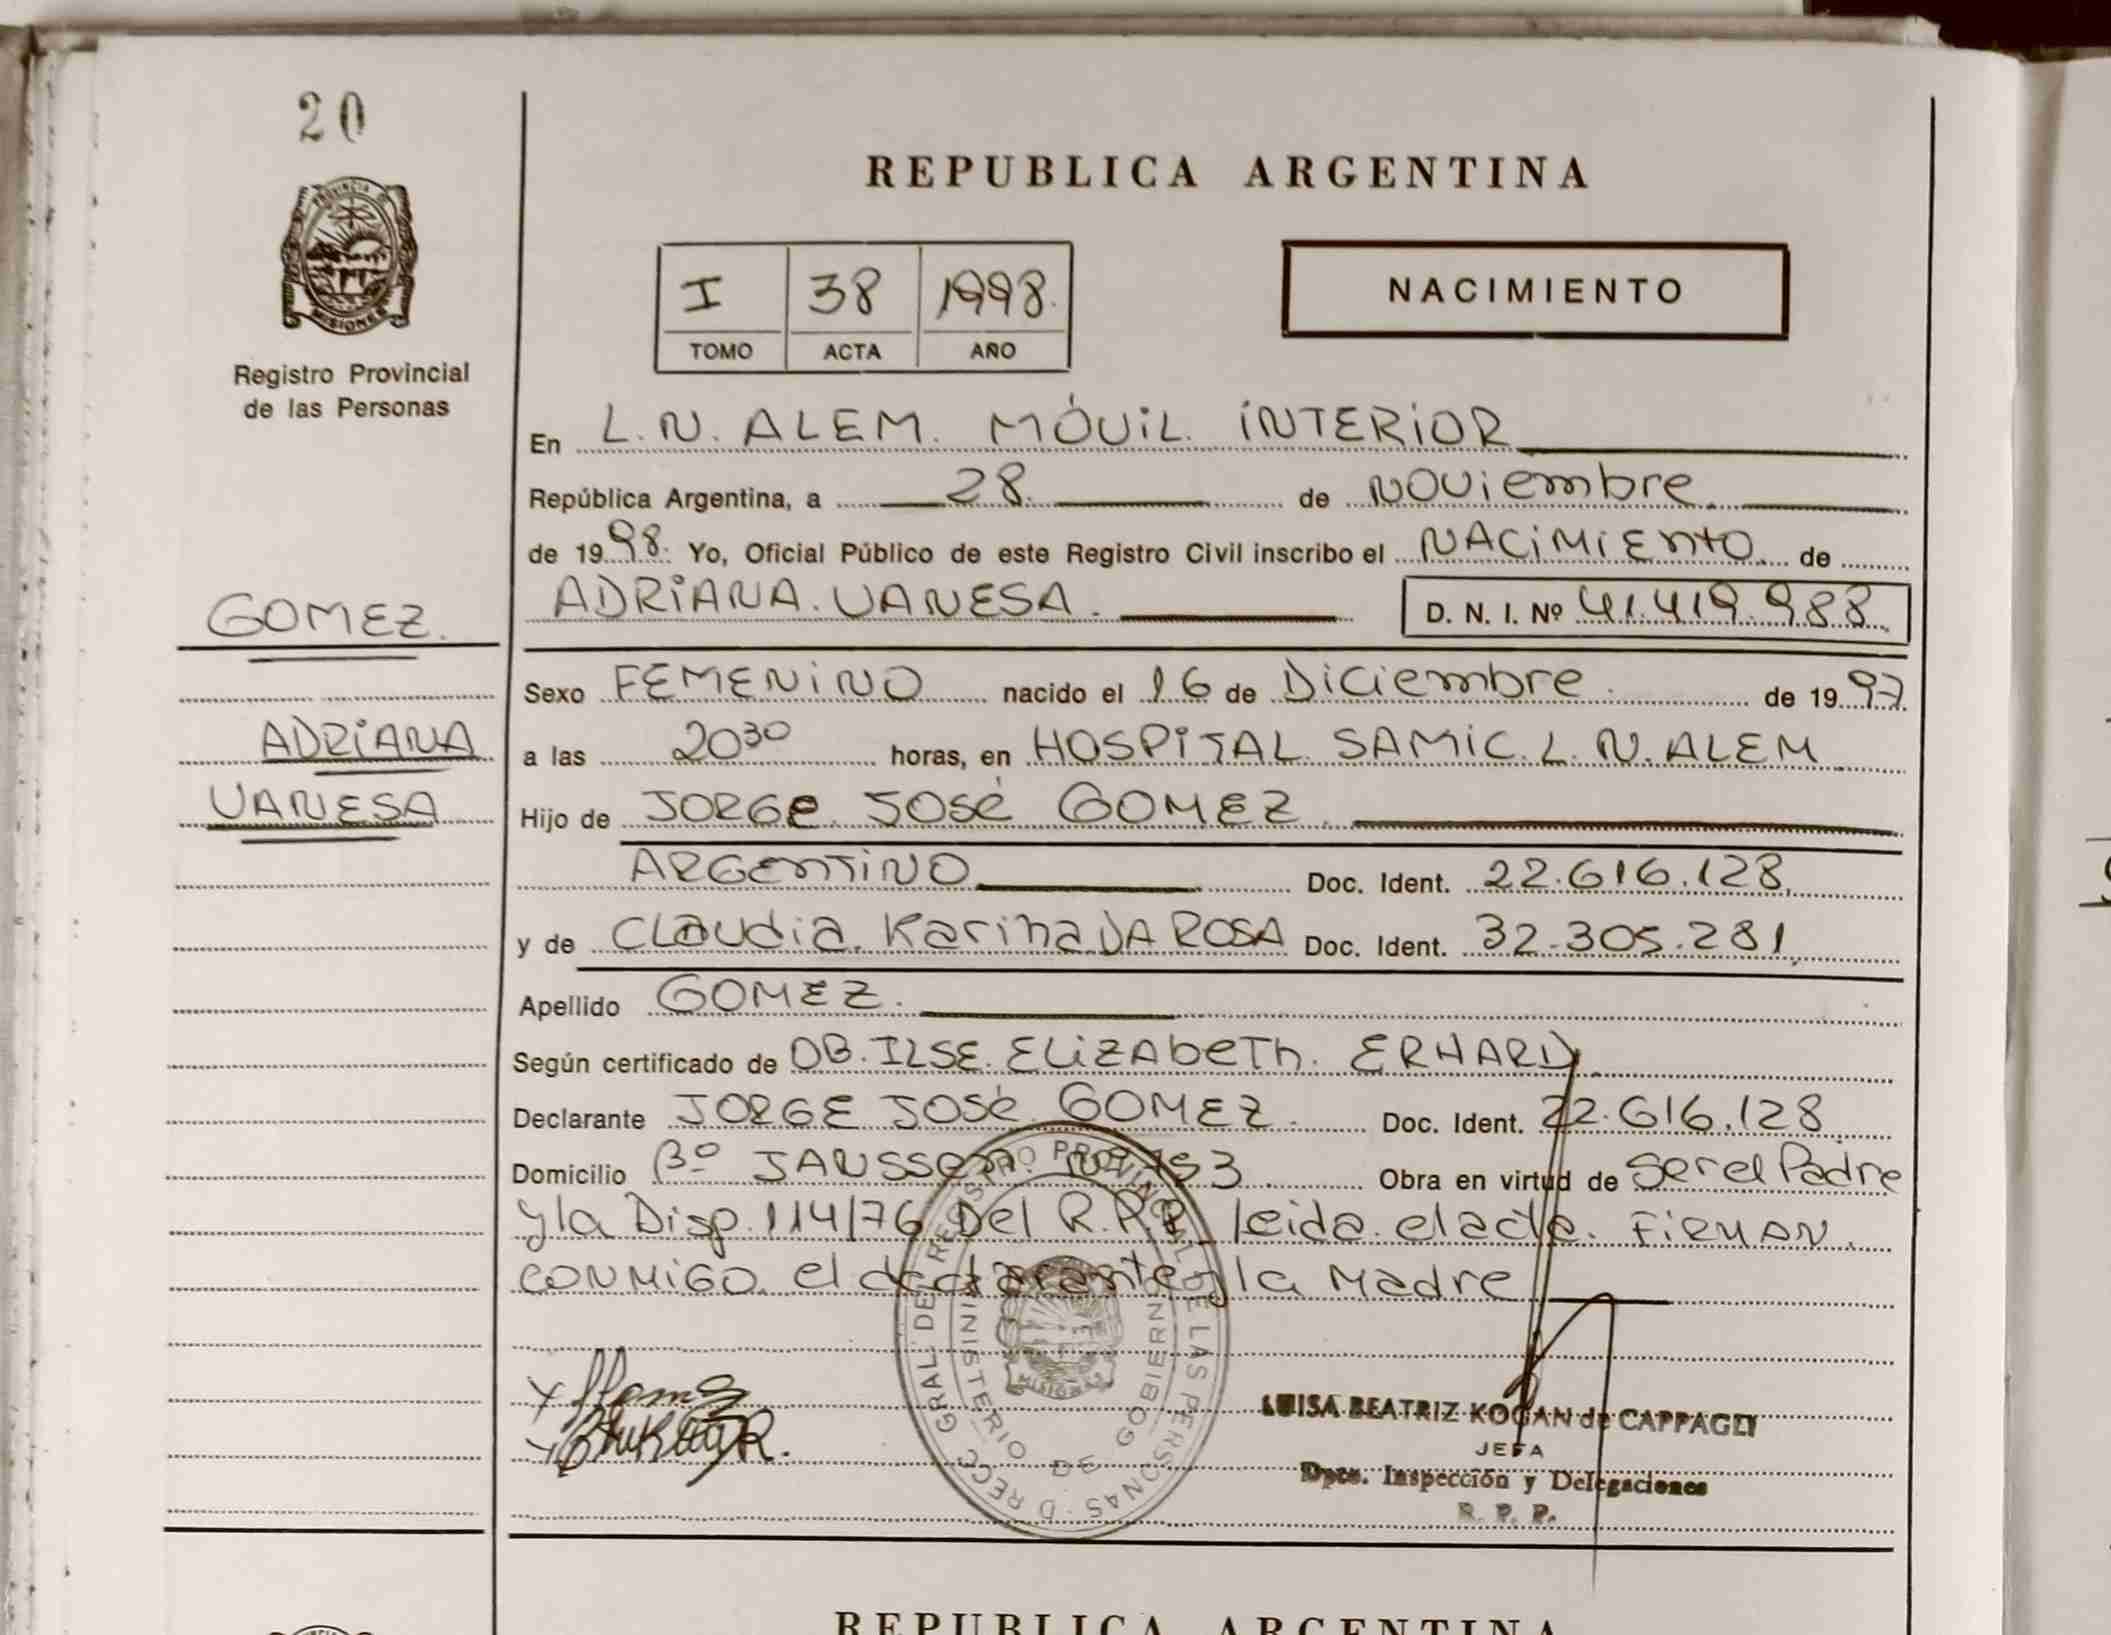 20
PROVINCIA DE
MISIONES
Registro Provincial
de las Personas
GOMEZ.
ADRIANA
VANESA
REPUBLICA ARGENTINA
I 38 1998.
TOMO ACTA AÑO
NACIMIENTO
En L.N. ALEM. MÓVIL INTERIOR
República Argentina, a 28. de NOViembre.
de 1998. Yo, Oficial Público de este Registro Civil inscribo el NACIMIENtO de
ADRIANA. VANESA. D. N. I. Nº 41.419.988.
Sexo FEMENINO nacido el 16 de Diciembre. de 1997.
a las 20³⁰ horas, en HOSPITAL SAMIC. L. N. ALEM
Hijo de JORGe JOSé GOMEZ
ARGENTINO Doc. Ident. 22.616.128.
y de CLaudia Karina DA ROSA Doc. Ident. 32.305.281
Apellido GOMEZ.
Según certificado de OB. ILSE. ELIZAbeTh. ERHARD
Declarante JORGE JOSé GOMEZ. Doc. Ident. 22.616.128
Domicilio Bº JANSSen. Nº 153 Obra en virtud de ser el Padre
y la Disp. 114/76 Del R.P.P. leida el acta. FIRMAN.
CONMIGO el declarante y la Madre
DIRECC GRAL DEL REGISTRO PROVINCIAL DE LAS PERSONAS
MINISTERIO DE GOBIERNO
MISIONES
LUISA BEATRIZ KOGAN de CAPPAGLI
JEFA
Dpto. Inspección y Delegaciones
R. P. P.
REPUBLICA ARGENTINA